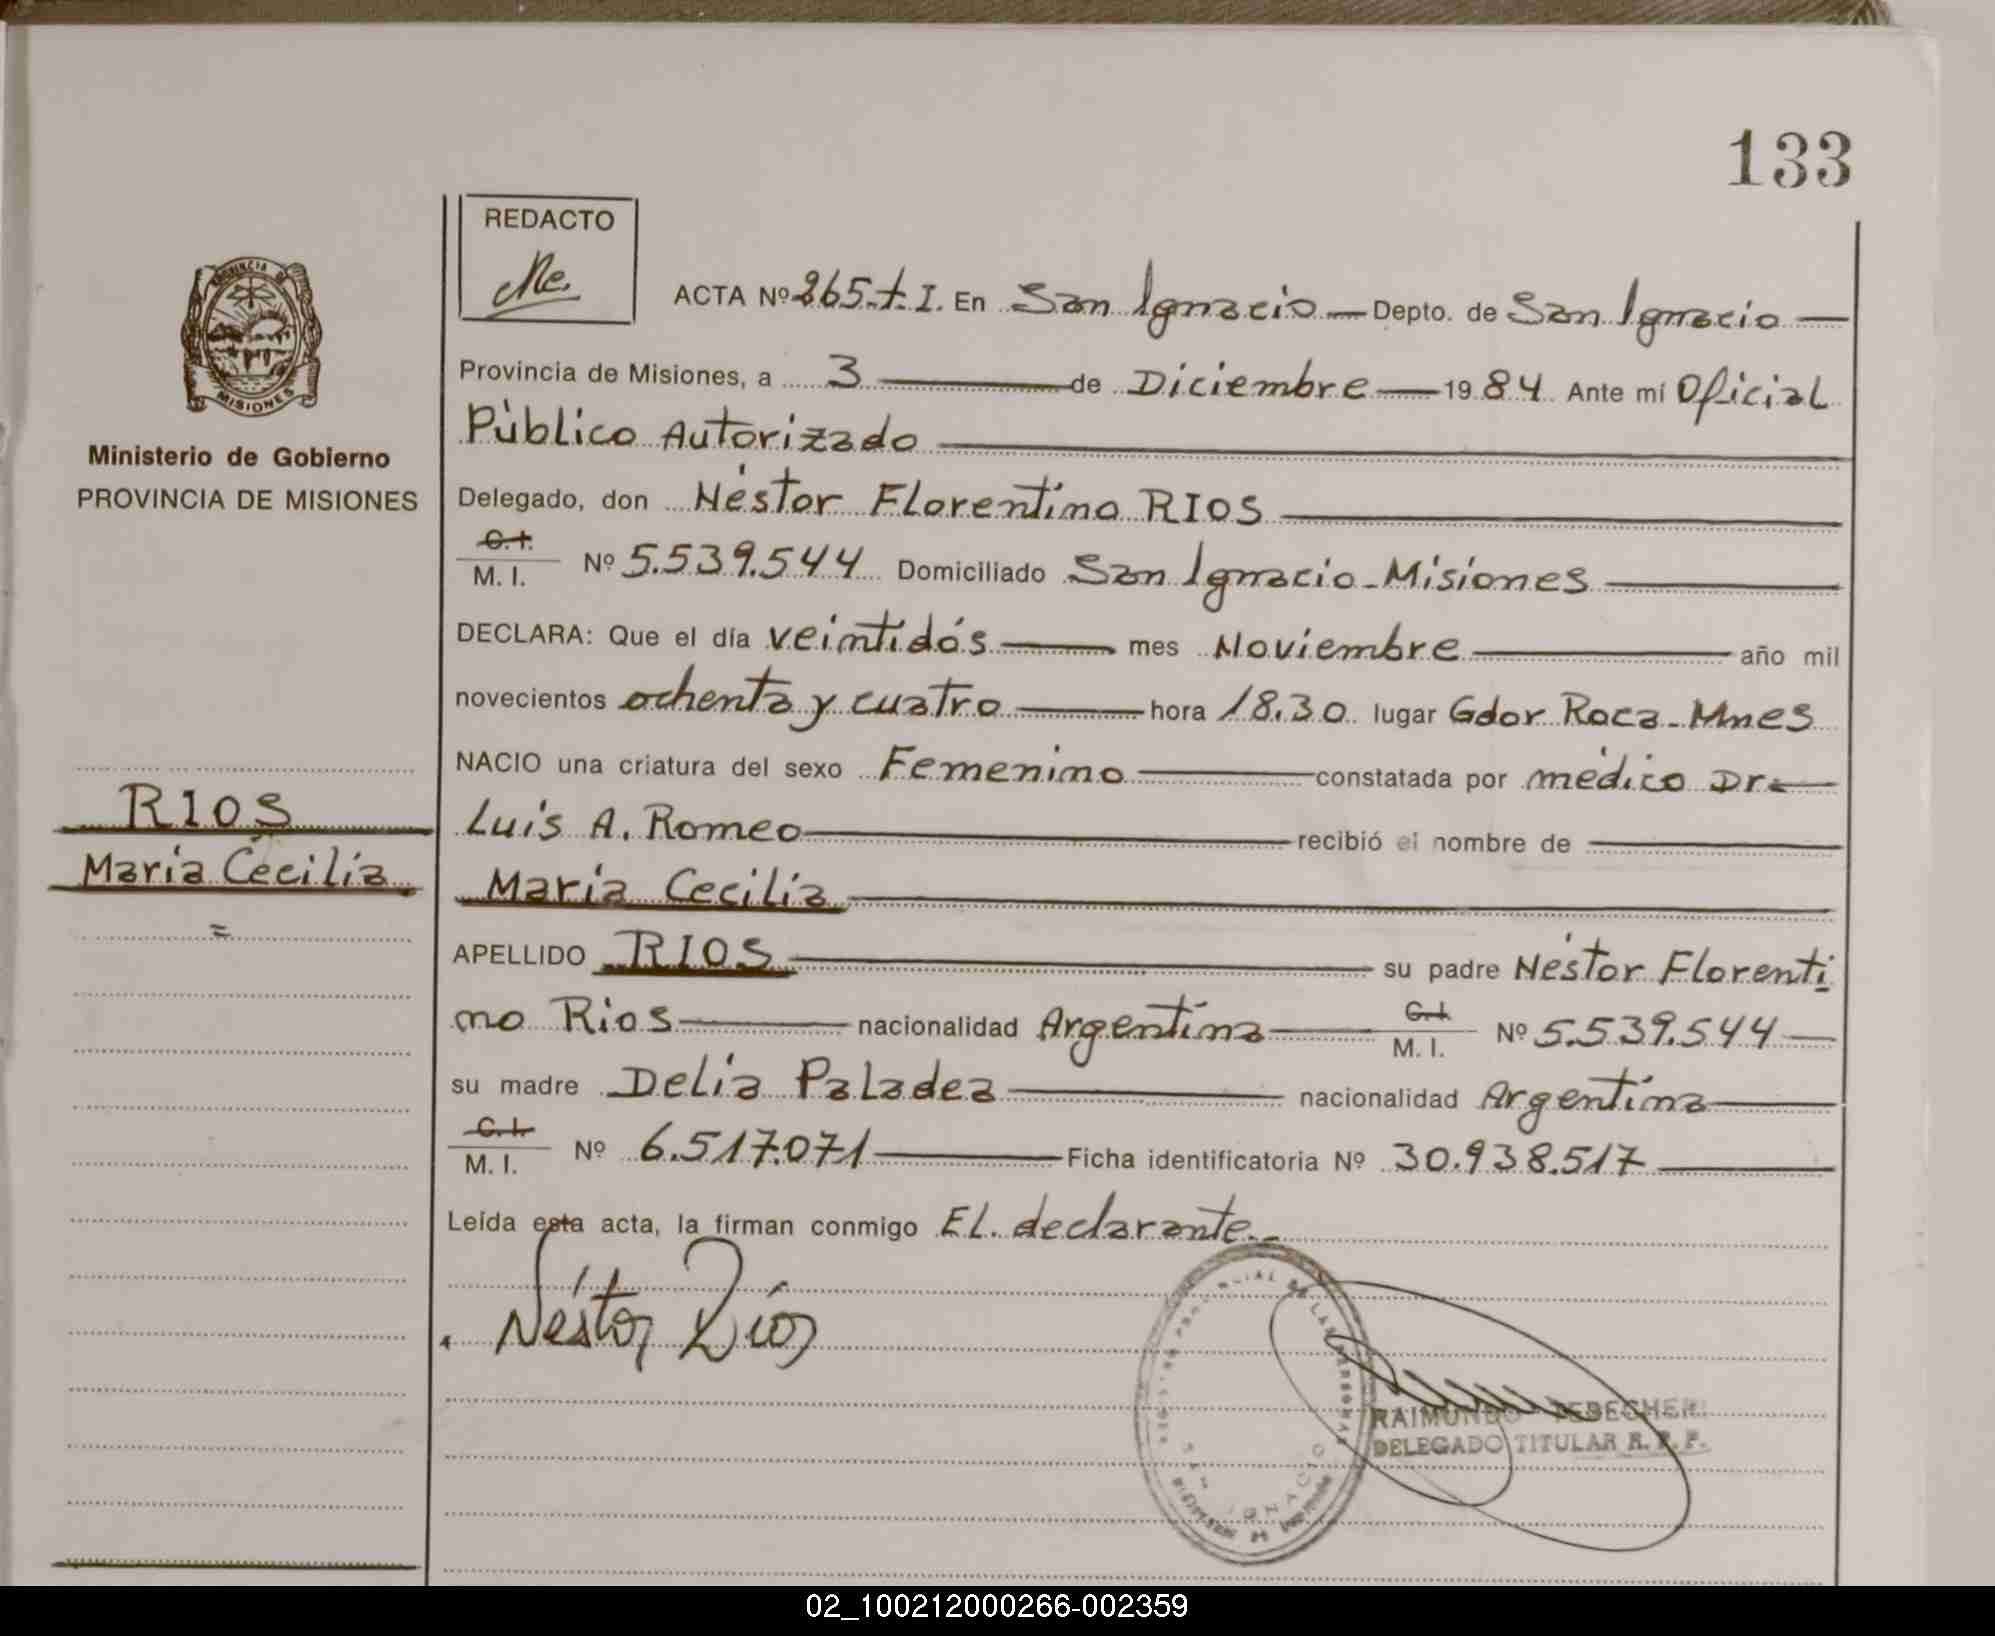 133
REDACTO
Me.
PROVINCIA DE
MISIONES
Ministerio de Gobierno
PROVINCIA DE MISIONES
RIOS
María Cecilia
=
ACTA Nº 265.t.I. En San Ignacio — Depto. de San Ignacio —
Provincia de Misiones, a 3 — de Diciembre — 19 84 Ante mí Oficial
Público Autorizado —
Delegado, don Néstor Florentino RIOS —
C.I. / M. I. Nº 5.539.544 Domiciliado San Ignacio-Misiones —
DECLARA: Que el día veintidós — mes Noviembre — año mil
novecientos ochenta y cuatro — hora 18.30 lugar Gdor Roca-Mnes
NACIO una criatura del sexo Femenino — constatada por médico Dr.—
Luis A. Romeo — recibió el nombre de —
María Cecilia —
APELLIDO RIOS — su padre Néstor Florenti
no Rios — nacionalidad Argentina — C.I. / M. I. Nº 5.539.544 —
su madre Delia Paladea — nacionalidad Argentina —
C.I. / M. I. Nº 6.517.071 — Ficha identificatoria Nº 30.938.517 —
Leída esta acta, la firman conmigo EL declarante.-
Néstor Ríos
DE LAS PERSONAS
SAN IGNACIO
RAIMUNDO
DELEGADO TITULAR R. P. P.
02_100212000266-002359